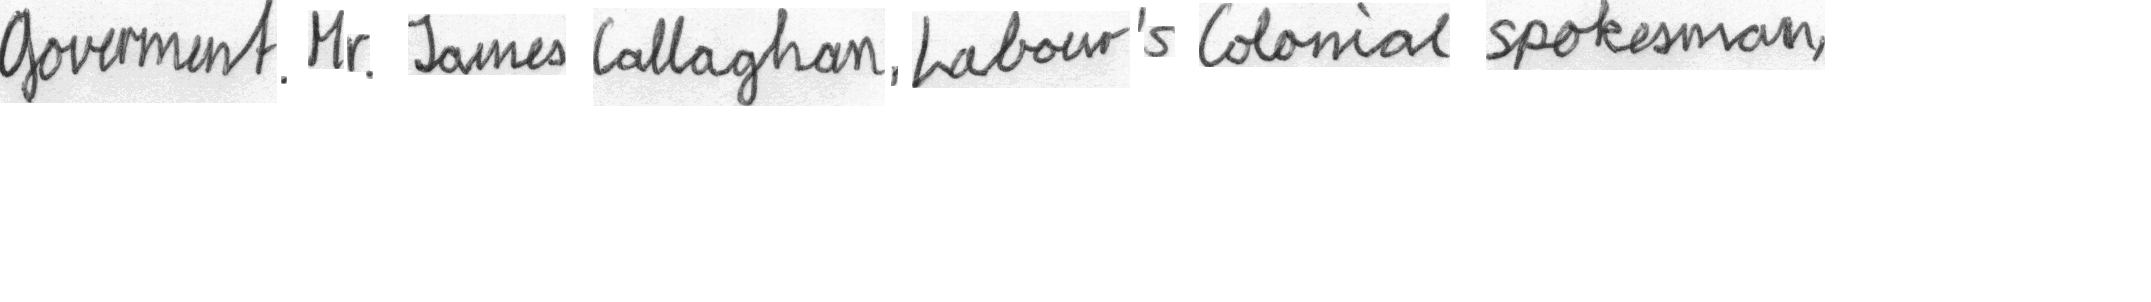 Goverment. Mr. James Callaghan, Labour's Colonial spokesman,